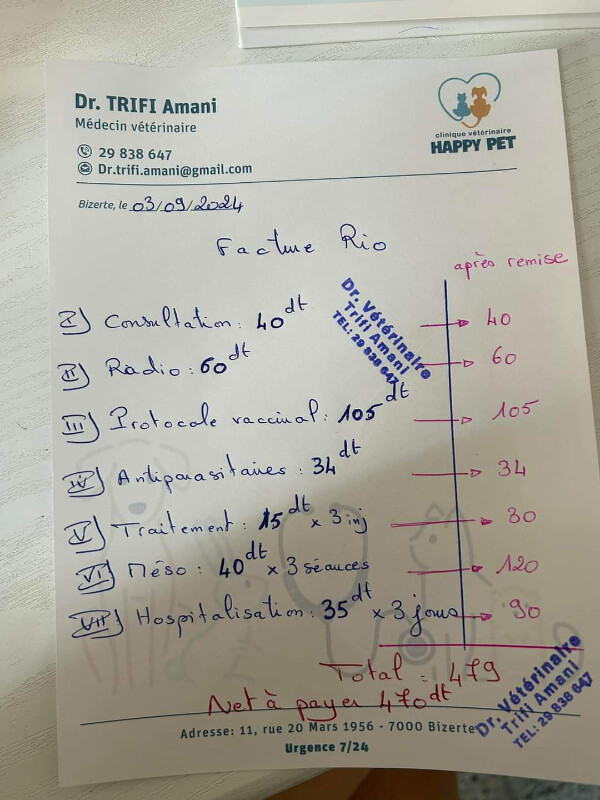 Dr. TRIFI Amani
Médecin vétérinaire
29 838 647
Dr.trifi.amani@gmail.com
clinique vétérinaire
HAPPY PET
Bizerte, le 03/09/2024
Facture Rio
après remise
I) Consultation : 40 dt → 40
II) Radio : 60 dt → 60
Dr. Vétérinaire
Trifi Amani
TEL: 29 838 647
III) Protocole vaccinal : 105 dt → 105
IV) Antiparasitaires : 34 dt → 34
V) Traitement : 15 dt x 3 inj → 30
VI) Méso : 40 dt x 3 séances → 120
VII) Hospitalisation : 35 dt x 3 jours → 90
Total : 479
Net à payer 470 dt
Dr. Vétérinaire
Trifi Amani
TEL: 29 838 647
Adresse: 11, rue 20 Mars 1956 - 7000 Bizerte
Urgence 7/24